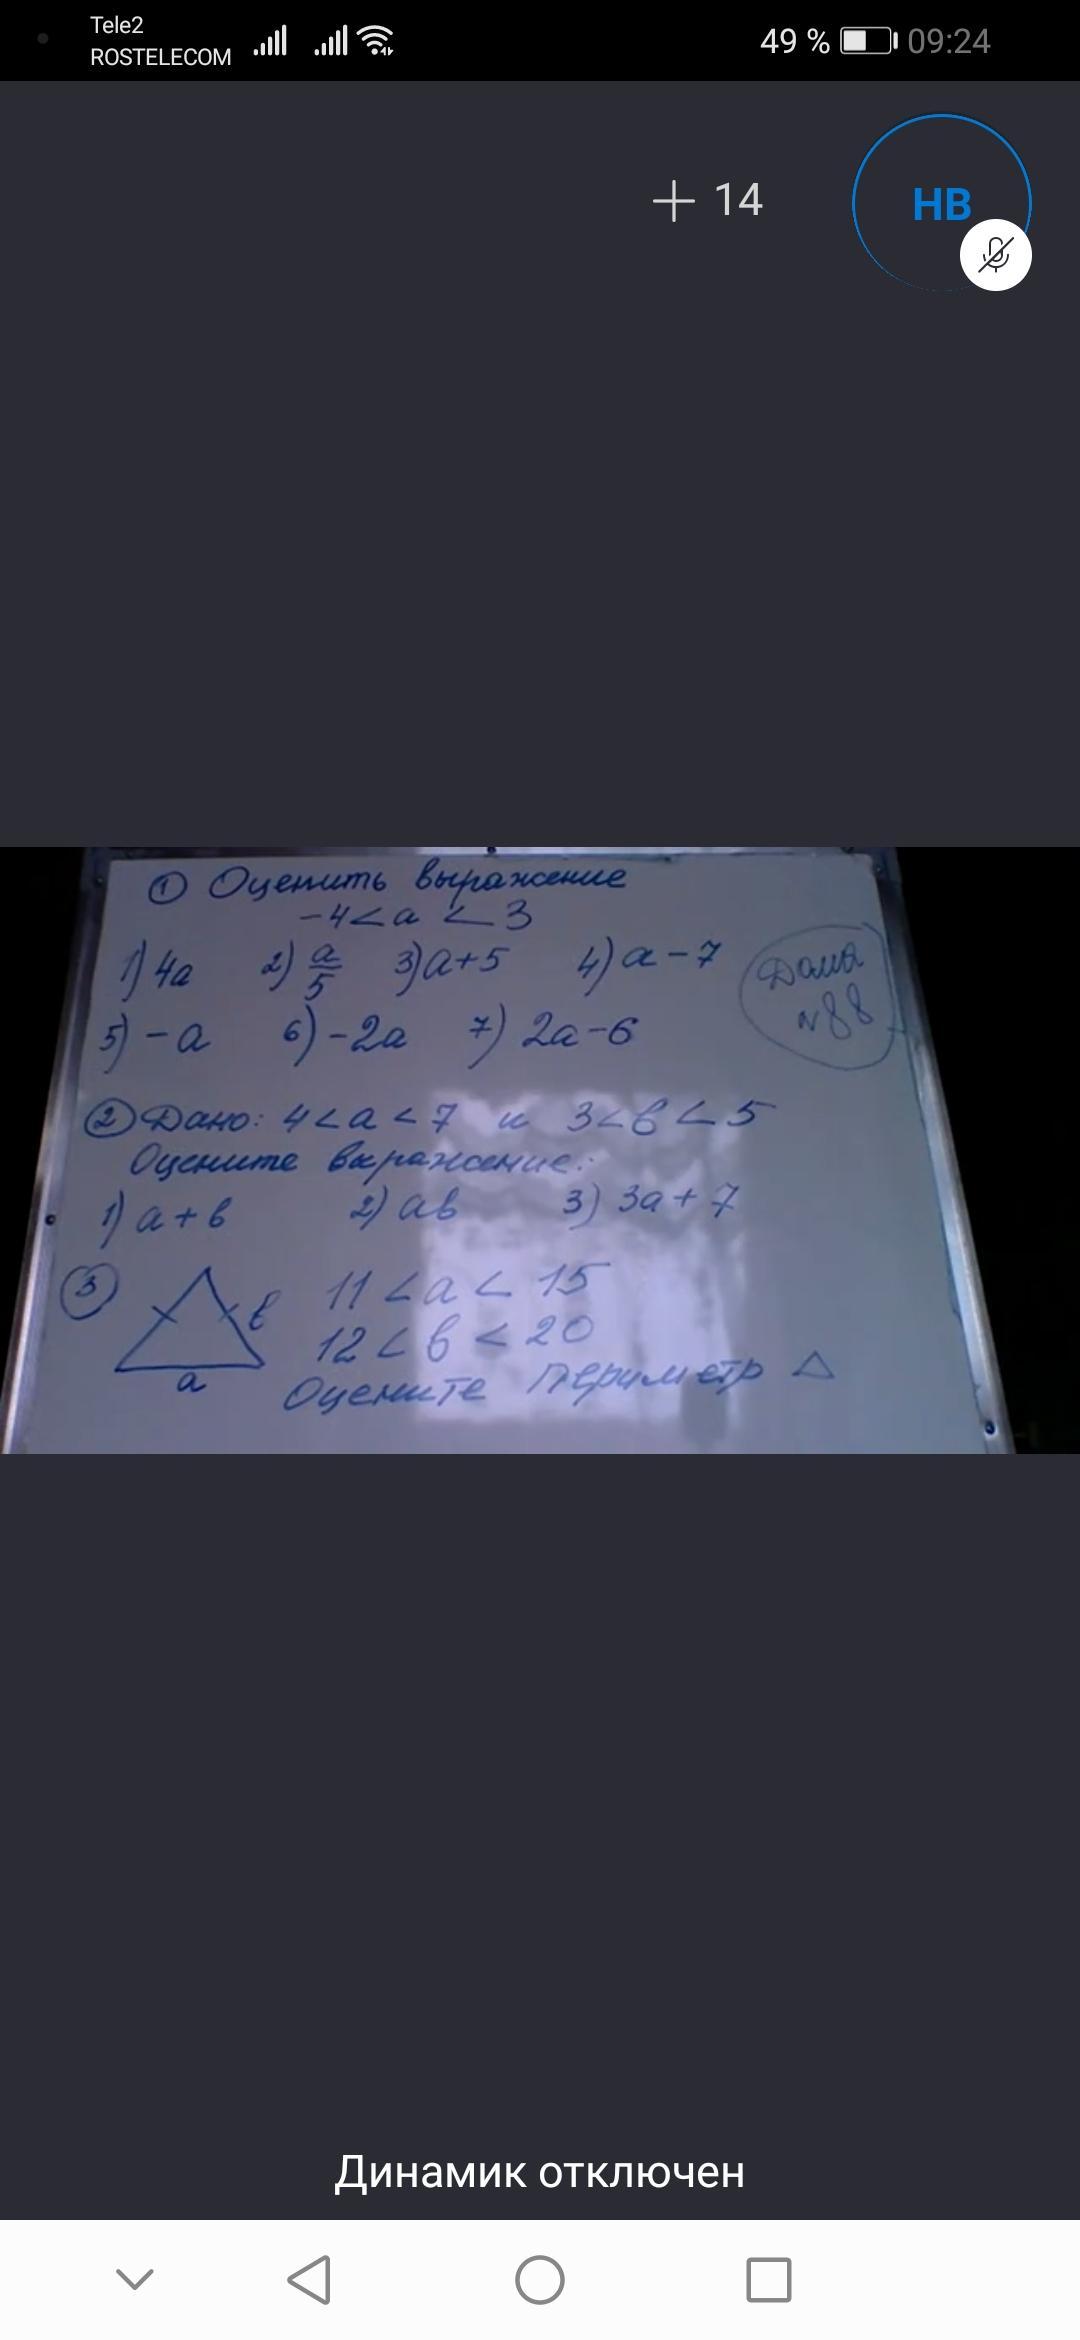 Tele2
ROSTELECOM
49 %
09:24
+ 14
НВ
① Оценить выражение
-4<a<3
1) 4a 2) a/5 3) a+5 4) a-7
Дома
№88
5) -a 6) -2a 7) 2a-6
② Дано: 4<a<7 и 3<b<5
Оцените выражение:
1) a+b 2) ab 3) 3a+7
③ b 11<a<15
12<b<20
a
Оцените периметр △
Динамик отключен